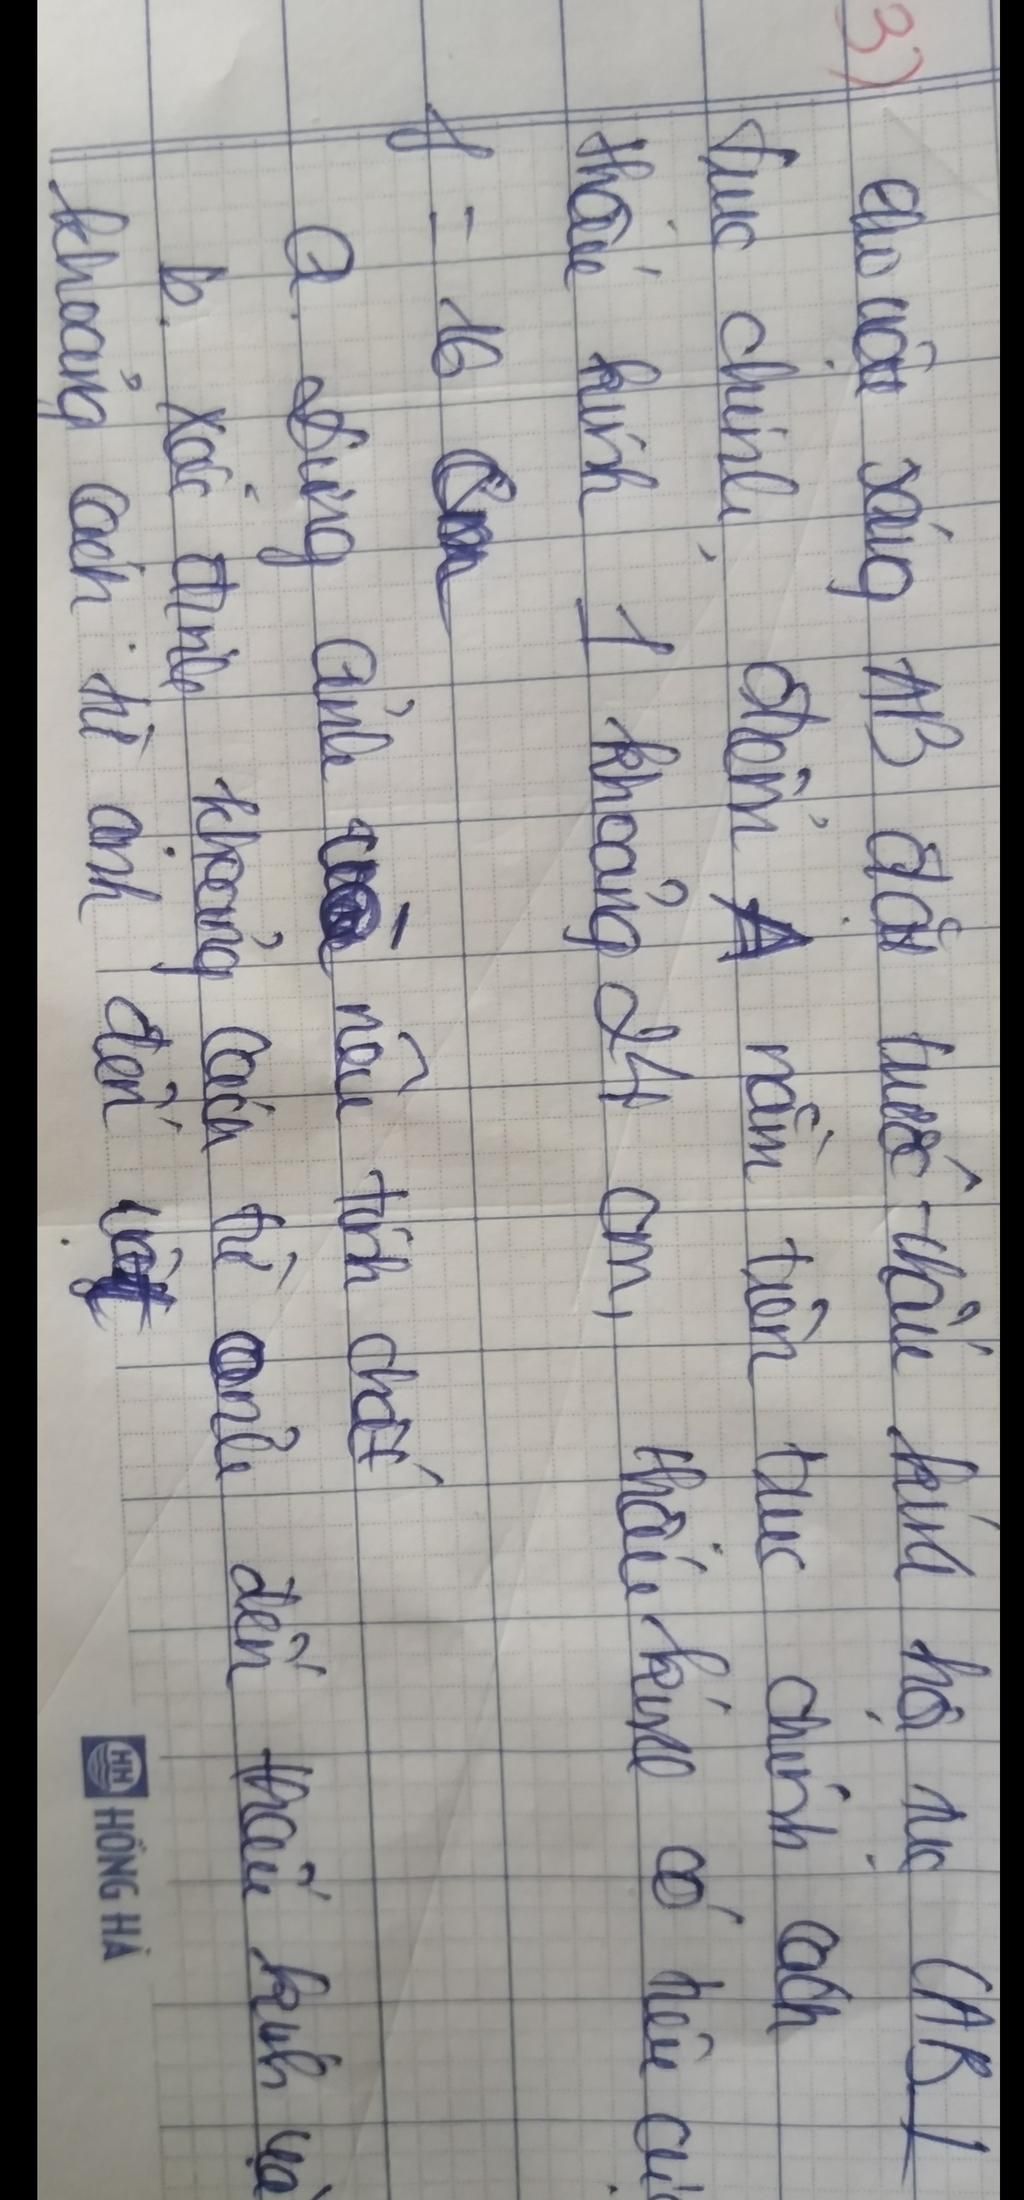 3)
Cho vật sáng AB đặt trước thấu kính hội tụ (AB ⊥
trục chính, điểm A nằm trên trục chính cách
thấu kính 1 khoảng 24 cm, thấu kính có tiêu cự
f = 16 cm
a. Dựng ảnh nêu tính chất
b. Xác định khoảng cách từ ảnh đến thấu kính và
khoảng cách từ ảnh đến vật
HH HỒNG HÀ